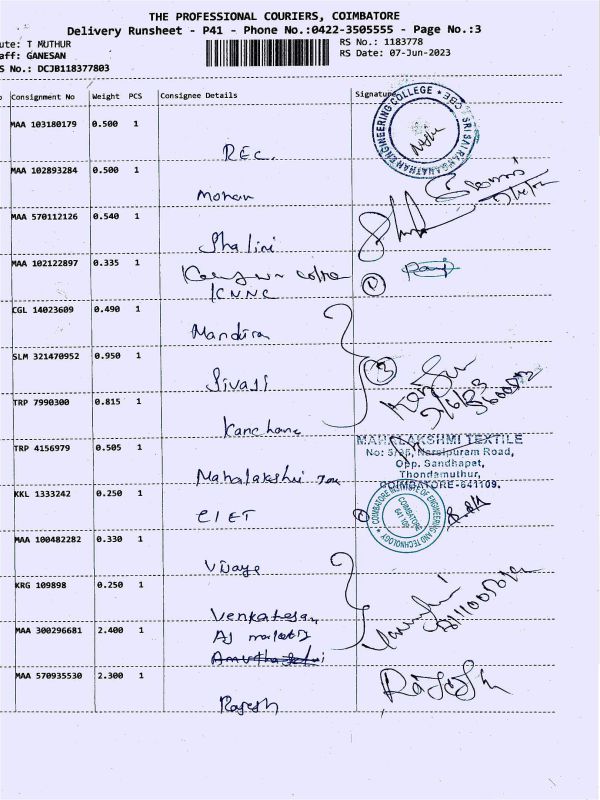 THE PROFESSIONAL COURIERS, COIMBATORE
Delivery Runsheet - P41 - Phone No.:0422-3505555 - Page No.:3
ute: T MUTHUR
RS No.: 1183778
aff: GANESAN
RS Date: 07-Jun-2023
S No.: DCJB118377803
Consignment No Weight PCS Consignee Details Signature
MAA 103180179 0.500 1
REC.
ENGINEERING COLLEGE * SRI SAI RANGANATHAN
MAA 102893284 0.500 1
Mohan
MAA 570112126 0.540 1
Shalini
MAA 102122897 0.335 1
CGL 14023609 0.490 1
Mandira
SLM 321470952 0.950 1
Sivaji
3
TRP 7990300 0.815 1
Kanchana
7/6/23
TRP 4156979 0.505 1
Mahalakshmi Tex
MAHALAKSHMI TEXTILE
No: 5/95, Narsipuram Road,
Opp. Sandhapet,
Thondamuthur,
COIMBATORE-641109.
KKL 1333242 0.250 1
CIET
COIMBATORE INSTITUTE OF ENGINEERING AND TECHNOLOGY
COIMBATORE
641 109
MAA 100482282 0.330 1
Vijaya
KRG 109898 0.250 1
Venkatesan
MAA 300296681 2.400 1
AJ
MAA 570935530 2.300 1
Rajesh
Rajesh